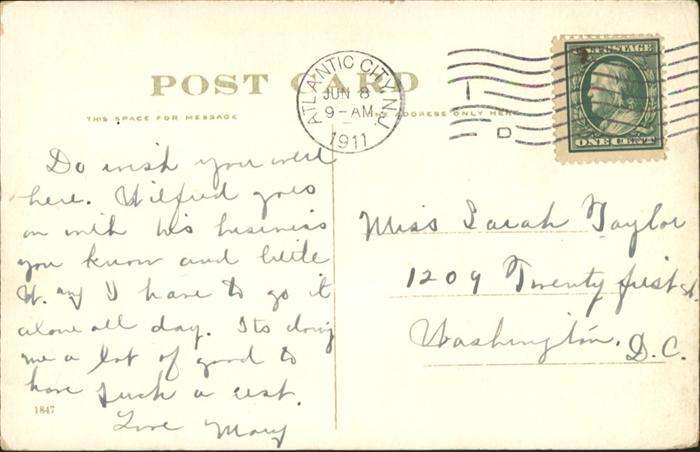 POST CARD
THIS SPACE FOR MESSAGE
ADDRESS ONLY HERE
ATLANTIC CITY, N.J.
JUN 8
9-AM
1911
U.S. POSTAGE
ONE CENT
Do wish you were
here. Wilfred goes
on with his business
you know and little
W. and I have to go it
alone all day. Its doing
me a lot of good to
have such a rest.
Love Mary
Miss Sarah Taylor
1209 Twenty first St
Washington.
D.C.
1847